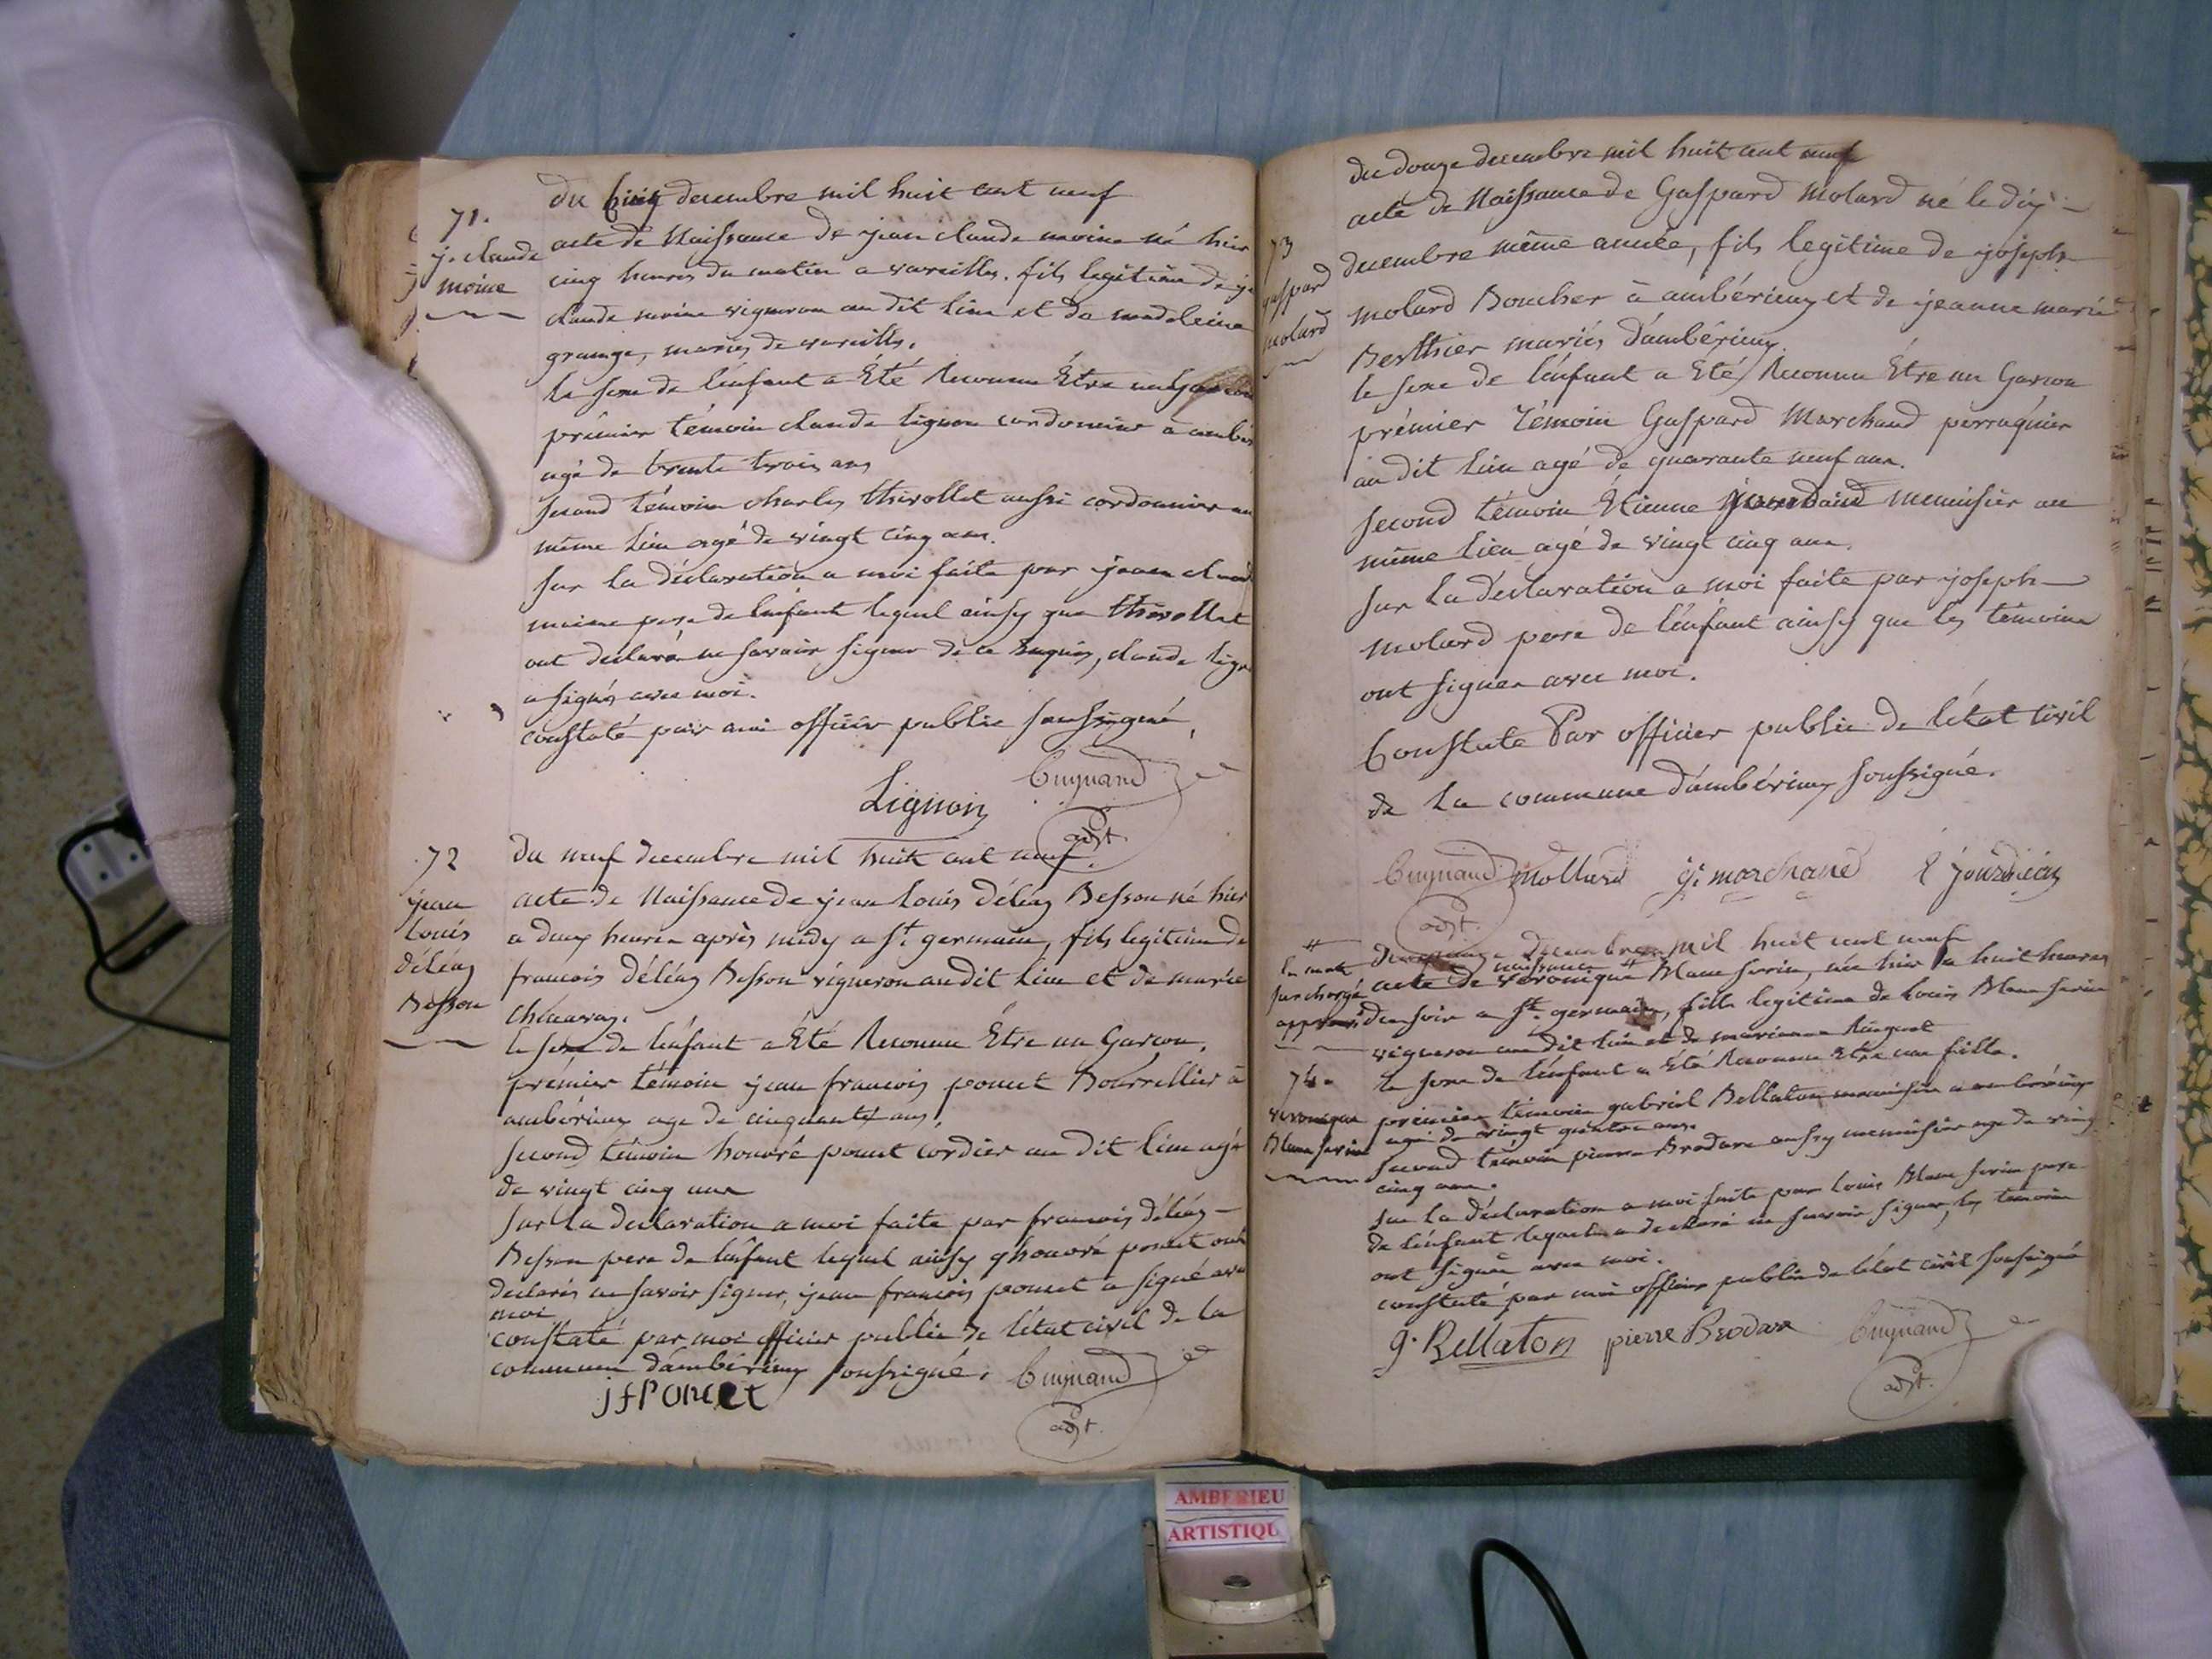 71.
j. claude
moine
du cinq decembre mil huit cent neuf
acte de Naissance de jean claude moine né hier
cinq heures du matin a vareilles, fils legitime de j
claude moine vigneron au dit lieu et de madeleine
grange, mariés de vareilles.
le sexe de l'enfant a Eté Reconnu Être un Garcon
prémier témoin claude lignon cordonnier a ambé
agé de trente trois ans
second témoin charles thivollet aussi cordonnier au
même lieu agé de vingt cinq ans.
sur la déclaration a moi faite par jean claude
moine pere de l'enfant lequel ainsy que thivollet
ont declaré ne savoir signer de ce Requis, claude lign
a signé avec moi.
constaté par moi officier public soussigné,
Lignon Cuynand
adjt.
72
jean
Louis
déléaz
Besson
du neuf decembre mil huit cent neuf.
acte de Naissance de jean Louis déléaz Besson né hier
a deux heures après midy a St. germain, fils legitime de
francois déléaz Besson vigneron au dit lieu et de marie
le sexe de l'enfant a Eté Reconnu Être un Garcon.
prémier témoin jean francois poncet Bourrellier à
ambérieux age de cinquante ans,
second témoin honoré poncet cordier au dit lieu agé
de vingt cinq ans
sur la declaration a moi faite par francois déléaz
Besson pere de l'enfant lequel ainsy q'honoré poncet ont
declarés ne savoir signer, jean francois poncet a signé avec
moi
constaté par moi officier public de l'état civil de la
commune d'ambérieux soussigné. Cuynand
jfPoncet adjt.
73
gaspard
molard
du douze decembre mil huit cent neuf
acte de Naissance de Gaspard Molard né le dix
decembre même année, fils legitime de joseph
molard Boucher à ambérieux et de jeanne marie
Berthier mariés d'ambérieux.
le sexe de l'enfant a Eté Reconnu Être un Garcon
prémier Témoin Gaspard Marchand perruquier
au dit lieu agé de quarante neuf ans.
second témoin Étienne jourdain menuisier au
même lieu agé de vingt cinq ans.
sur la déclaration a moi faite par joseph
molard pere de l'enfant ainsy que les témoins
ont signer avec moi.
Constaté Par officier public de l'état civil
de la commune d'ambérieux soussigné.
Cuynand Mollard G. marchand E jourdain
adjt.
#
surchargé
74.
veronique
Blanc ferin
decembre mil huit cent neuf
naissance #
acte de veronique Blanc ferin, née hier a huit heures
du soir a St. germain, fille legitime de Louis Blanc ferin
vigneron au dit lieu et de marianne
le sexe de l'enfant a Eté Reconnu Etre une fille.
prémier témoin gabriel Bellaton menuisier a ambérieux
agé de vingt quatre ans.
second témoin pierre Brodare aussy menuisier age de vingt
cinq ans.
sur la déclaration a moi faite par Louis Blanc ferin pere
de l'enfant lequel a declaré ne savoir signer, les temoins
ont signé avec moi.
constaté par moi officier public de l'état civil soussigné
g. Bellaton pierre Brodare Cuynand
adjt.
AMBERIEU
ARTISTIQU